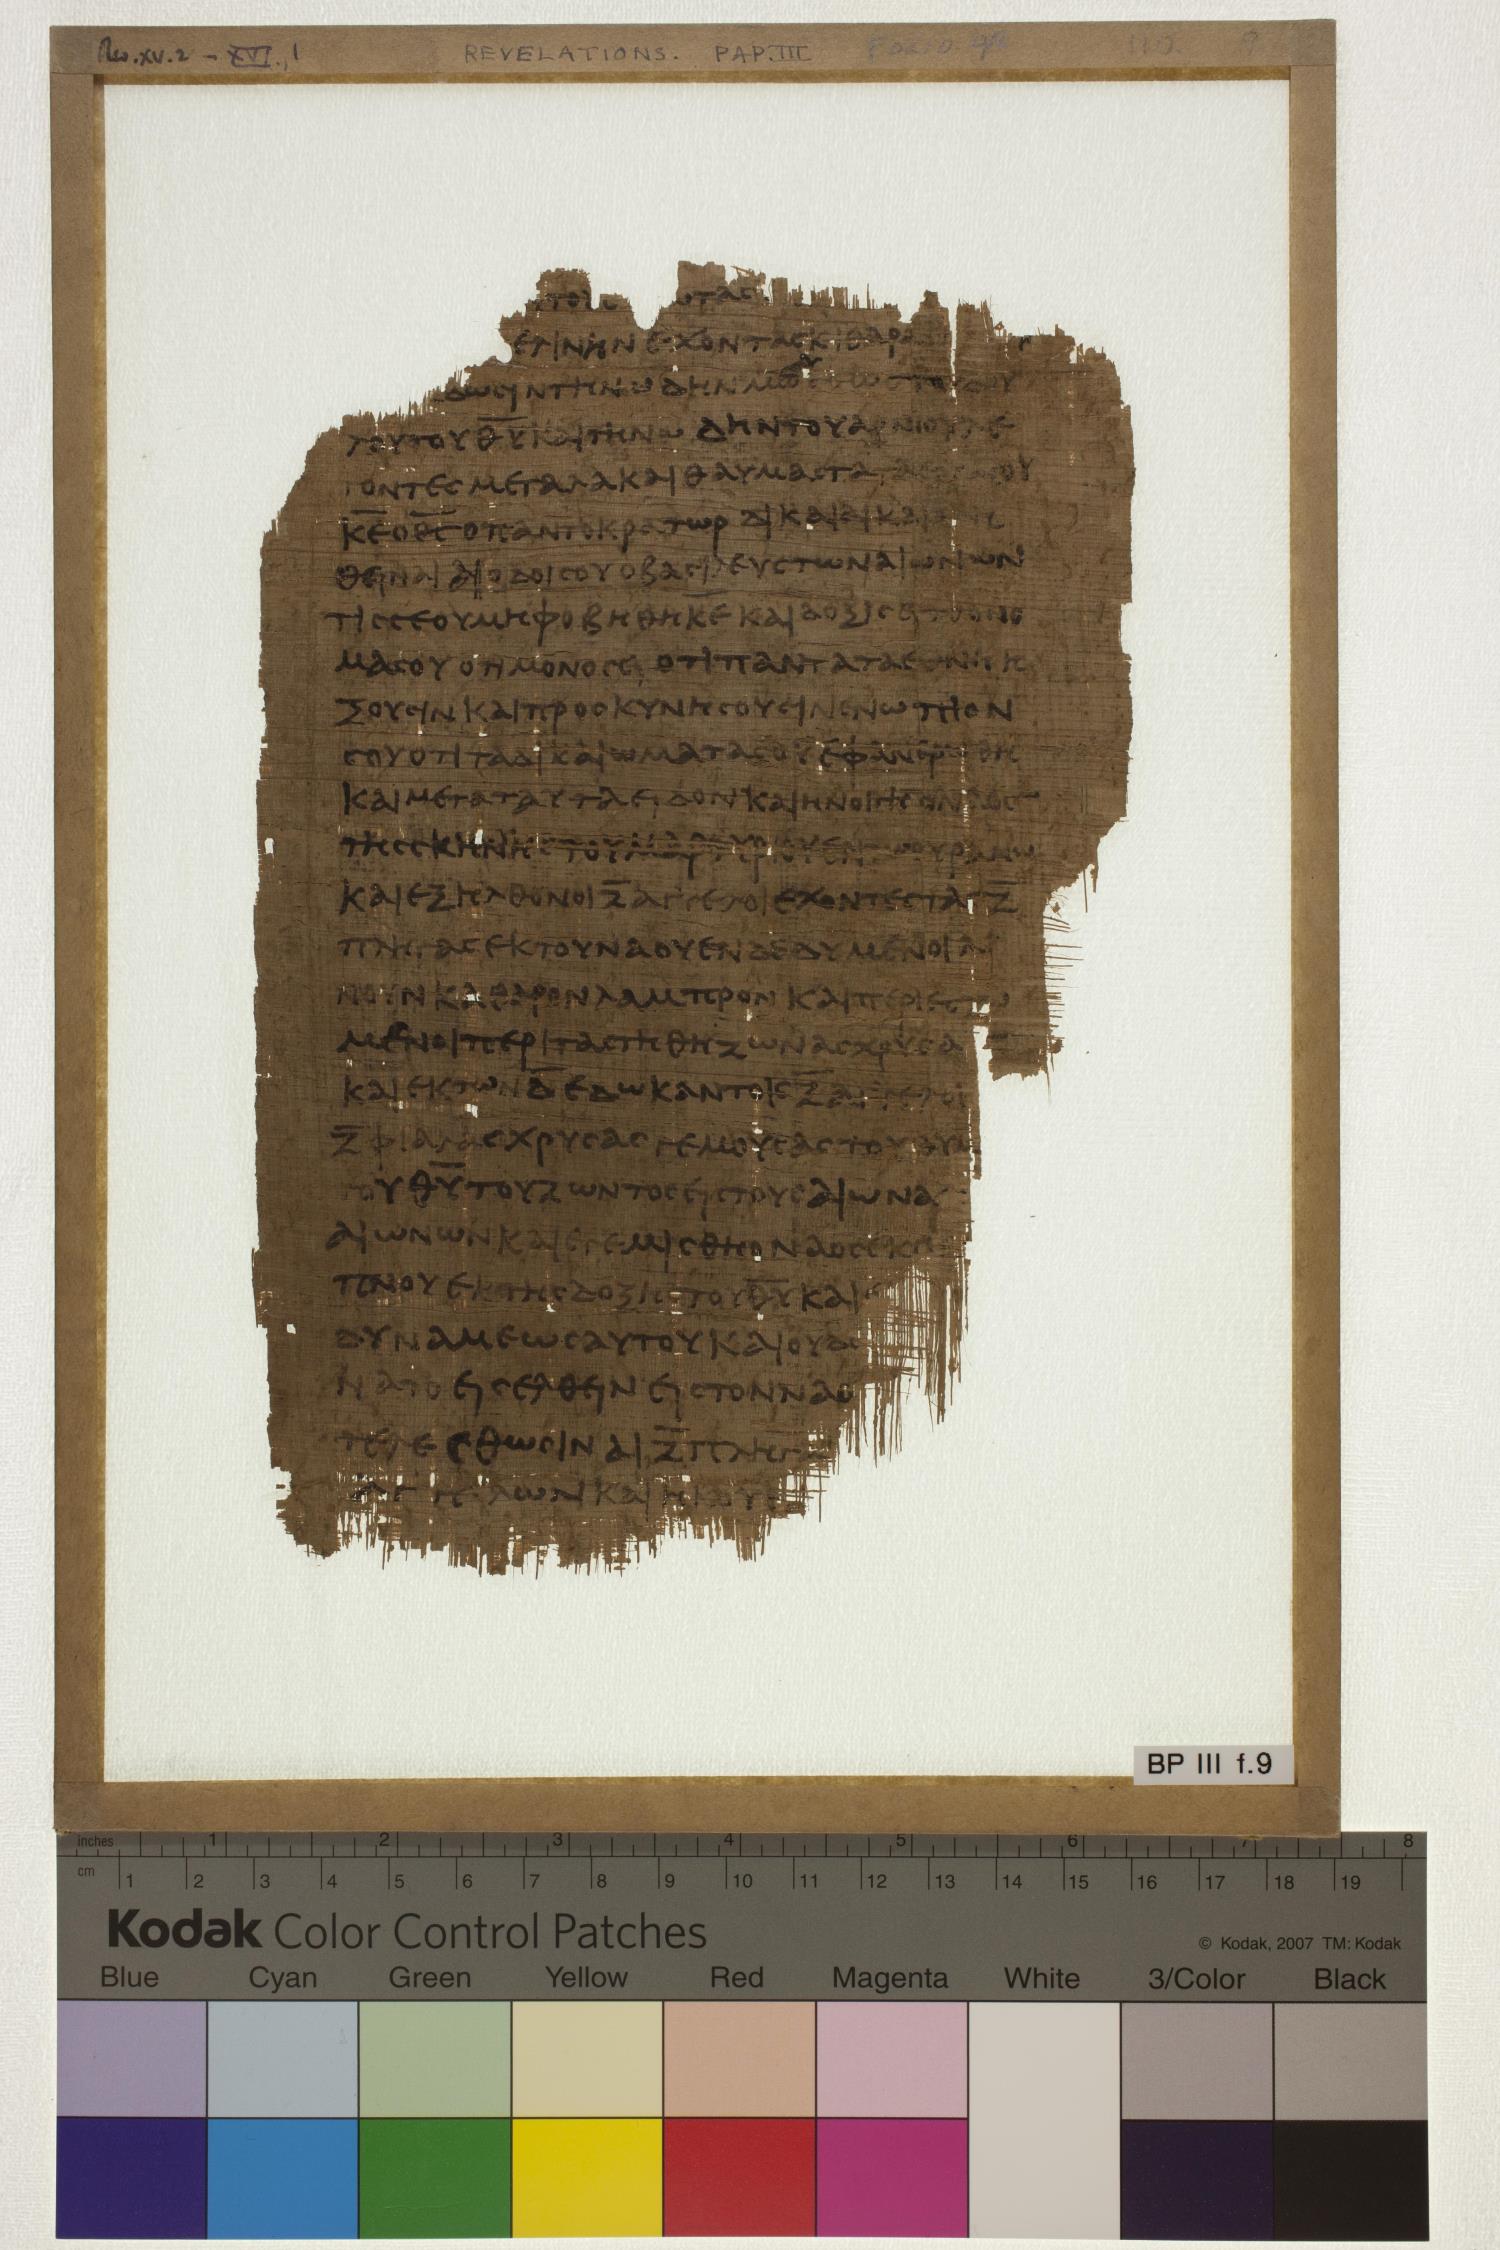 Rev. XV. 2 - XVI., 1 REVELATIONS. PAP. III Folio 9 110. 9
ΕΠΙΝΗΝΕΧΟΝΤΑΣΚΙΘΑΡΑ
ΔΩΣΙΝΤΗΝΩΔΗΝΜΩ
ΛΟΥΤΟΥΘ̅Υ̅ΚΑΙΤΗΝΩΔΗΝΤΟΥΑΡΝΙΟΥΛΕ
ΓΟΝΤΕΣΜΕΓΑΛΑΚΑΙΘΑΥΜΑΣΤΑ
Κ̅Ε̅Ο̅Θ̅Σ̅ΟΠΑΝΤΟΚΡΑΤΩΡΔΙΚΑΙΑΙΚΑΙΑΛΗ
ΘΕΙΝΑΙΑΙΟΔΟΙΣΟΥΟΒΑΣΙΛΕΥΣΤΩΝΑΙΩΝΩΝ
ΤΙΣΣΕΟΥΜΗΦΟΒΗΘΗΚ̅Ε̅ΚΑΙΔΟΞΙΣΕΙΤΟΟΝΟ
ΜΑΣΟΥΟΤΙΜΟΝΟΣΕΙΟΤΙΠΑΝΤΑΤΑΕΘΝΗΗ
ΞΟΥΣΙΝΚΑΙΠΡΟΣΚΥΝΗΣΟΥΣΙΝΕΝΩΠΙΟΝ
ΣΟΥΟΤΙΤΑΔΙΚΑΙΩΜΑΤΑΣΟΥΕΦΑΝΕΡΩΘΗ
ΚΑΙΜΕΤΑΤΑΥΤΑΕΙΔΟΝΚΑΙΗΝΟΙΓΗΟΝΑΟΣ
ΤΗΣΣΚΗΝΗΣΤΟΥΜΑΡΤΥΡΙΟΥΕΝΤΩΟΥΡΑΝΩ
ΚΑΙΕΞΗΛΘΟΝΟΙΖ̅ΑΓΓΕΛΟΙΕΧΟΝΤΕΣΤΑΣΖ̅
ΠΛΗΓΑΣΕΚΤΟΥΝΑΟΥΕΝΔΕΔΥΜΕΝΟΙΛΙ
ΝΟΥΝΚΑΘΑΡΟΝΛΑΜΠΡΟΝΚΑΙΠΕΡΙΕΖΩ
ΜΕΝΟΙΠΕΡΙΤΑΣΤΗΘΗΖΩΝΑΣΧΡΥΣΑ
ΚΑΙΕΚΤΩΝΔ̅ΕΔΩΚΑΝΤΟΙΣΖ̅ΑΓΓΕΛΟΙ
Ζ̅ΦΙΑΛΑΣΧΡΥΣΑΣΓΕΜΟΥΣΑΣΤΟΥΘΥΜ
ΤΟΥΘ̅Υ̅ΤΟΥΖΩΝΤΟΣΕΙΣΤΟΥΣΑΙΩΝΑ
ΑΙΩΝΩΝΚΑΙΕΓΕΜΙΣΘΗΟΝΑΟΣΕΚ
ΠΝΟΥΕΚΤΗΣΔΟΞΗΣΤΟΥΘ̅Υ̅ΚΑΙ
ΔΥΝΑΜΕΩΣΑΥΤΟΥΚΑΙΟΥΔ
ΝΑΤΟΕΙΣΕΛΘΕΙΝΕΙΣΤΟΝΝΑΟ
ΤΕΛΕΣΘΩΣΙΝΑΙΖ̅ΠΛΗΓΑ
ΑΓΓΕΛΩΝΚΑΙΗΚΟΥ
BP III f.9
inches 1 2 3 4 5 6 7 8
cm 1 2 3 4 5 6 7 8 9 10 11 12 13 14 15 16 17 18 19
Kodak Color Control Patches © Kodak, 2007 TM: Kodak
Blue Cyan Green Yellow Red Magenta White 3/Color Black